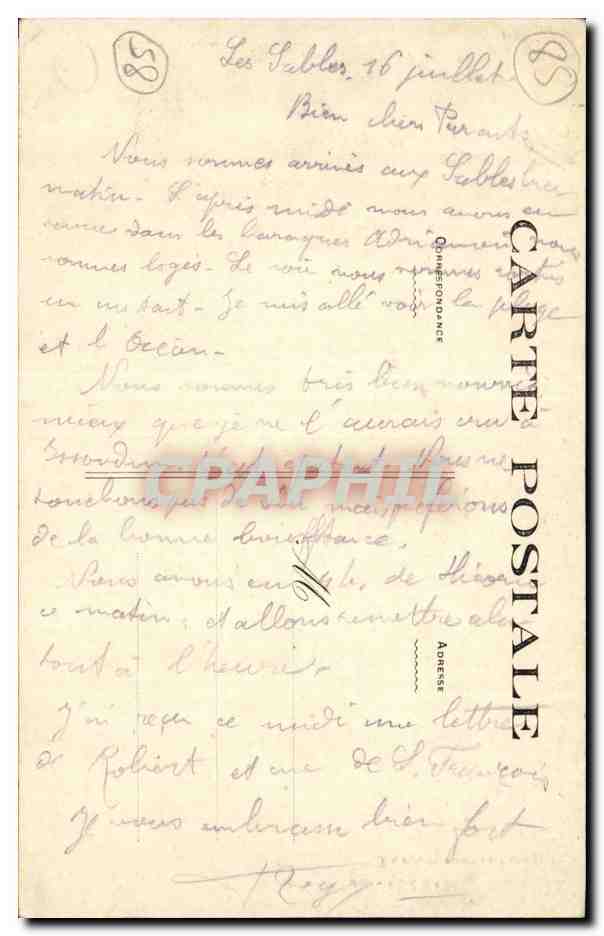 58
85
Les Sables, 16 juillet
Bien chers Parents
Nous sommes arrivés aux Sables hier
matin. L'après midi nous avons
dans les baraques Adrian nous
sommes logés. Le soir nous sommes sortis
un instant. Je suis allé voir la plage
et l'Océan.
Nous sommes très bien nourris
mieux que je ne l'aurais cru à
ne
touchons pas de vin mais
de la bonne
Nous avons eu 4h. de théorie
ce matin, et allons remettre
tout à l'heure.
J'ai reçu ce midi une lettre
de Robert et une de S. François
Je vous embrasse bien fort
CARTE POSTALE
CORRESPONDANCE
ADRESSE
M
CPAPHIL